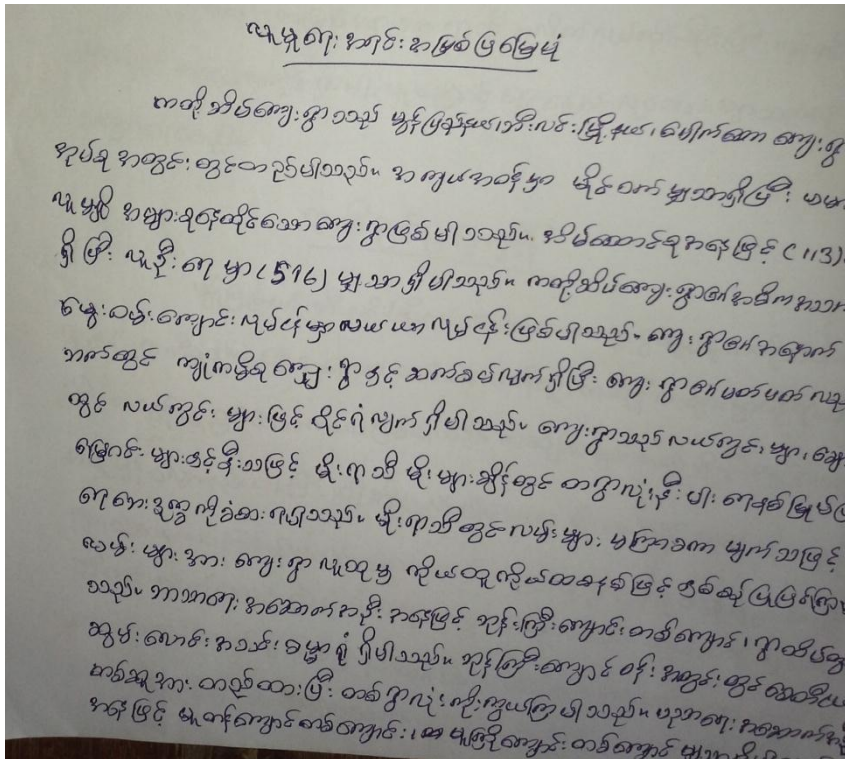 လူမှုရေး အရင်းအမြစ်ပြမြေပုံ
ကတိုအိပ်ကျေးရွာသည် မွန်ပြည်နယ်၊ ဘီးလင်းမြို့နယ်၊ ပေါက်တော ကျေးရွာ
အုပ်စု အတွင်းတွင် တည်ရှိပါသည်။ အကျယ်အဝန်းမှာ မိုင်ဝက်မျှသာရှိပြီး
လူမျိုး အများစုနေထိုင်သော ကျေးရွာဖြစ်ပါသည်။ အိမ်ထောင်စုအနေဖြင့် (113)
ရှိပြီး လူဦးရေမှာ (516) မျှသာရှိပါသည်။ ကတိုအိပ်ကျေးရွာ၏ အဓိက အသက်
မွေးဝမ်းကျောင်းလုပ်ငန်းမှာ လယ်ယာလုပ်ငန်းဖြစ်ပါသည်။ ကျေးရွာ၏ အနောက်
ဘက်တွင် ကျုံကမို့စုကျေးရွာနှင့် ဆက်စပ်လျက်ရှိပြီး ကျေးရွာ၏ ပတ်ပတ်လည်
တွင် လယ်ကွင်းများဖြင့် ဝိုင်ရံလျက်ရှိပါသည်။ ကျေးရွာသည် လယ်ကွင်းများ၊ ချော
မြောင်းများနှင့်နီးသဖြင့် မိုးရာသီ မိုးများချိန်တွင် တရွာလုံးနီးပါး ရေနစ်မြုပ်
ရေဘေးဒုက္ခကိုခံစားရပါသည်။ မိုးရာသီတွင်လမ်းများ မကြာခဏ ပျက်သဖြင့်
လမ်းများအား ကျေးရွာလူထုမှ ကိုယ်ထူကိုယ်ထစနစ်ဖြင့် နှစ်စဉ်ပြုပြင်ကြ
သည်။ ဘာသာရေး အဆောက်အဦး အနေဖြင့် ဘုန်းကြီးကျောင်းတစ်ကျောင်း၊ ရွာထိပ်တွင်
ဆွမ်းလောင်းအသင်းဓမ္မာရုံ ရှိပါသည်။ ဘုန်ကြီးကျောင်ဝန်းအတွင်းတွင် စေတီငယ်
တစ်ဆူအား တည်ထားပြီး တစ်ရွာလုံးကိုးကွယ်ကြပါသည်။ ပညာရေးအဆောက်အဦး
အနေဖြင့် မူလတန်ကျောင်တစ်ကျောင်း၊ မူကြိုကျောင်းတစ်ကျောင်း မျှသာရှိပါ